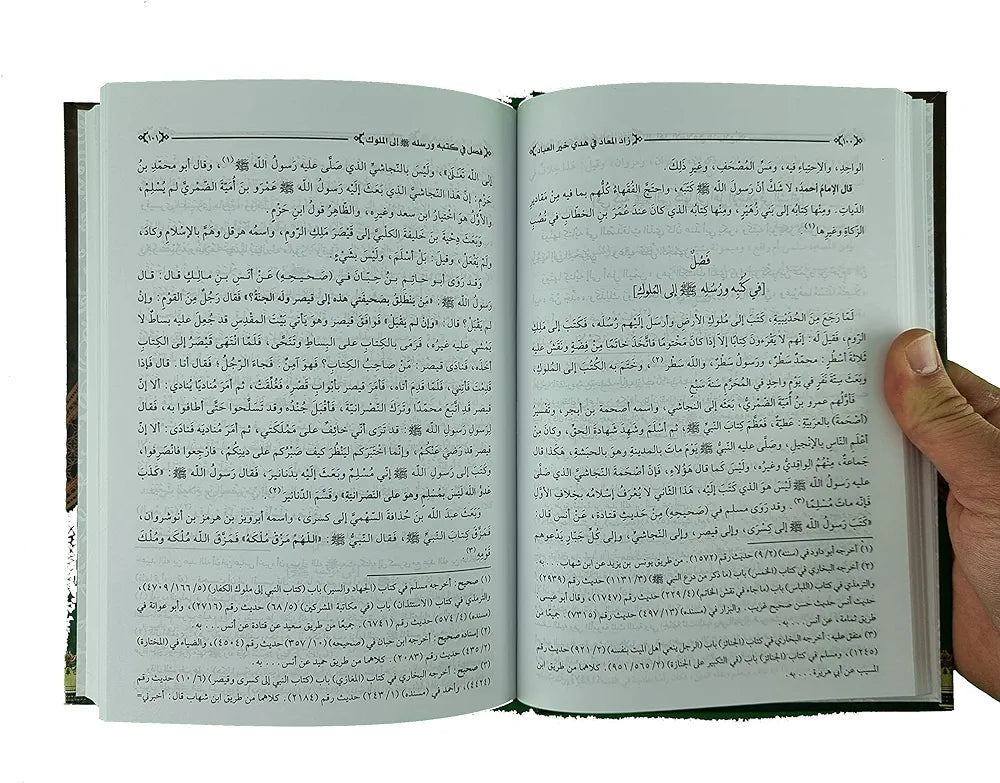 ﴿١٠٠﴾ ﴿زاد المعاد في هدي خير العباد﴾
الواحِدِ، والاحْتِباءِ فيه، ومَسِّ المُصْحَفِ، وغيرِ ذلِكَ.
قال الإمامُ أحمدُ: لا شَكَّ أنَّ رسولَ اللَّه ﷺ كَتَبَه، واحتَجَّ الفُقَهاءُ كُلُّهم بما فيه مِنْ مَقاديرِ
الدِّياتِ. ومِنْها كِتابُه إلى بَني زُهَيْرٍ، ومِنْها كِتابُه الذي كانَ عندَ عُمَرَ بنِ الخطَّابِ في نُصُبِ
الزَّكاةِ وغيرِها (١).
فَصْلٌ
[في كُتُبِه ورُسُلِه ﷺ إلى المُلوكِ]
لَمَّا رَجَعَ مِنَ الحُدَيْبِيَةِ، كَتَبَ إلى مُلوكِ الأرضِ وأرسَلَ إلَيْهِم رُسُلَه، فَكَتَبَ إلى مَلِكِ
الرُّومِ، فقِيلَ له: إنَّهم لا يَقْرَءونَ كِتابًا إلَّا إذا كانَ مَخْتُومًا فاتَّخَذَ خاتَمًا مِنْ فِضَّةٍ ونُقِشَ عليه
ثلاثةُ أسْطُرٍ: محمدٌ سَطْرٌ، ورسولُ سَطْرٌ، واللَّه سَطْرٌ (٢)، وخَتَمَ به الكُتُبَ إلى المُلوكِ،
وبَعَثَ سِتَّةَ نَفَرٍ في يَوْمٍ واحِدٍ في المُحَرَّمِ سَنَةَ سَبْعٍ
فأوَّلُهم عمرو بنُ أُمَيَّةَ الضَّمْريُّ، بَعَثَه إلى النجاشي، واسمه أصحمة بن أبجر، وتَفْسيرُ
(أصحمة) بالعربيَّةِ: عَطيَّة، فعَظَّمَ كتابَ النَّبيِّ ﷺ، ثم أسْلَمَ وشَهِدَ شَهادةَ الحقِّ، وكانَ مِنْ
أعْلَمِ النَّاسِ بالإنْجيلِ، وصَلَّى عليه النَّبيُّ ﷺ يَوْمَ ماتَ بالمدينةِ وهو بالحبشةِ، هكذا قال
جَماعةٌ، مِنْهُم الواقِديُّ وغيرُه، ولَيْسَ كما قال هَؤُلاءِ، فإنَّ أصْحَمَةَ النَّجاشيَّ الذي صَلَّى
عليه رَسولُ اللَّه ﷺ لَيْسَ هو الذي كَتَبَ إلَيْه، هَذا الثاني لا يُعْرَفُ إسْلامُه بخِلافِ الأوَّلِ
فإنَّه ماتَ مُسْلِمًا (٣). وقد رَوَى مسلم في (صحيحِه) مِنْ حَديثِ قتادةَ، عَنْ أنَسٍ قال:
«كَتَبَ رَسولُ اللَّه ﷺ إلى كِسْرَى، وإلى قَيصَرَ، وإلى النَّجاشيِّ، وإلى كُلِّ جَبَّارٍ يَدْعُوهم
(١) أخرجه أبو داود في (سننه) (٩/٢) حديث رقم (١٥٧٢). من طريق يونس بن يزيد عن ابن شهاب... به.
(٢) أخرجه البخاري في كتاب (الخمس) باب (ما ذكر من درع النبي ﷺ) (١١٣١/٣) حديث رقم (٢٩٣٩)
والترمذي في كتاب (اللباس) باب (ما جاء في نقش الخاتم) (٢٢٩/٤) حديث رقم (١٧٤٧)، وقال أبو عيسى:
حديث أنس حديث حسن صحيح غريب. والبزار في مسنده (٤٩٧/١٣) حديث رقم (٧٣١٥). جميعًا من
طريق ثمامة، عن أنس... به.
(٣) متفق عليه: أخرجه البخاري في كتاب (الجنائز) باب (الرجل ينعي أهل الميت بنفسه) (٩٢١/٢) حديث رقم
(١٢٤٥)، ومسلم في كتاب (الجنائز) باب (في التكبير على الجنازة) (٥١٥/٢) (٩٥١). كلاهما من طريق ابن
المسيب عن أبي هريرة... به.
﴿فصل في كتبه ورسله ﷺ إلى الملوك﴾ ﴿١٠١﴾
إلى اللَّه تَعالَى»، ولَيْسَ بالنَّجاشيِّ الذي صَلَّى عليه رَسولُ اللَّه ﷺ (١)، وقال أبو محمَّدِ بنُ
حَزْمٍ: إنَّ هَذا النَّجاشيَّ الذي بَعَثَ إلَيْه رَسولُ اللَّه ﷺ عَمْرَو بنَ أُمَيَّةَ الضَّمْريَّ لم يُسْلِمْ،
والأوَّلُ هو اخْتيارُ ابنِ سعد وغيرِه، والظَّاهِرُ قولُ ابنِ حَزْمٍ.
وبَعَثَ دِحْيةَ بنَ خَليفةَ الكَلْبيَّ إلى قَيْصَرَ مَلِكِ الرُّومِ، واسمُه هرقل وهَمَّ بالإسْلامِ وكادَ،
ولَمْ يَفْعَلْ، وقيلَ: بَلْ أسْلَمَ، ولَيْسَ بشَيْءٍ.
وقد رَوَى أبو حاتم بنُ حِبَّانَ في (صَحيحِه) عَنْ أنَسِ بنِ مالِكٍ قال: قال
رَسولُ اللَّه ﷺ: «مَنْ يَنْطَلِقُ بصَحيفَتي هذه إلى قيصر ولَه الجنةُ؟» فقال رَجُلٌ مِنَ القَوْمِ: وإنْ
لم يَقْبَلْ؟ قال: «وإنْ لم يَقْبَلْ» فَوافَقَ قيصر وهو يَأتي بَيْتَ المقدِسِ قد جُعِلَ عليه بِساطٌ لا
يَمْشي عليه غيرُه، فرَمَى بالكتابِ على البِساطِ وتَنَحَّى، فَلَمَّا انْتَهَى قَيْصَرُ إلى الكتابِ
أخَذَه، فنادَى قيصر: مَنْ صاحِبُ الكتابِ؟ فهو آمِنٌ. فجاءَ الرَّجُلُ، فقال: أنا. قال: فإذا
قَدِمْتَ فأتِني، فَلَمَّا قَدِمَ أتاه، فأمَرَ قيصر بأبْوابِ قَصْرِه، فغُلِّقَتْ، ثم أمَرَ مُناديًا يُنادي: ألا إنَّ
قيصر قد اتَّبَعَ محمَّدًا وتَرَكَ النَّصْرانيَّةَ، فأقْبَلَ جُنْدُه وقد تَسَلَّحوا حَتَّى أطافوا به، فقال
لِرَسولِ رَسولِ اللَّه ﷺ: قد تَرَى أنِّي خائِفٌ على مَمْلَكَتي، ثم أمَرَ مُناديَه فنادَى: ألا إنَّ
قيصر قد رَضيَ عَنْكُم، وإنَّما اخْتَبَرَكم ليَنْظُرَ كيفَ صَبْرُكم على دينِكُم، فارْجِعوا فانْصَرَفوا،
وكَتَبَ إلى رَسولِ اللَّه ﷺ إنِّي مُسْلِمٌ وبَعَثَ إلَيْه بدَنانيرَ، فقال رَسولُ اللَّه ﷺ: «كَذَبَ
عَدوُّ اللَّه لَيسَ بمُسْلِمٍ وهو على النَّصْرانيَّةِ» وقَسَّمَ الدَّنانيرَ (٢).
وبَعَثَ عبدَ اللَّه بنَ حُذافةَ السَّهْميَّ إلى كِسْرَى، واسمه أبرويز بن هرمز بن أنوشروان،
فَمَزَّقَ كِتابَ النَّبيِّ ﷺ، فقال النَّبيُّ ﷺ: «اللَّهُمَّ مَزِّقْ مُلْكَهُ» فمَزَّقَ اللَّه مُلْكَه ومُلْكَ
قَوْمِه (٣).
(١) صحيح: أخرجه مسلم في كتاب (الجهاد والسير) باب (كتاب النبي إلى ملوك الكفار) (١٦٦/٥/٤٧٠٩)
والترمذي في كتاب (الاستئذان) باب (في مكاتبة المشركين) (٦٨/٥) حديث رقم (٢٧١٦)، وأبو عوانة في
(مسنده) (٥٧٤/٤) حديث رقم (٦٧٤١). جميعًا من طريق سعيد عن قتادة عن أنس... به.
(٢) إسناده صحيح: أخرجه ابن حبان في (صحيحه) (٣٥٧/١٠) حديث رقم (٤٥٠٤)، والضياء في (المختارة)
(٤٣٥/٢) حديث رقم (٢٠٨٣). كلاهما من طريق حميد عن أنس... به.
(٣) صحيح: أخرجه البخاري في كتاب (المغازي) باب (كتاب النبي إلى كسرى وقيصر) (١٠/٦) حديث رقم
(٤٤٢٤)، وأحمد في (مسنده) (٢٤٣/١) حديث رقم (٢١٨٤). كلاهما من طريق ابن شهاب قال: أخبرني=